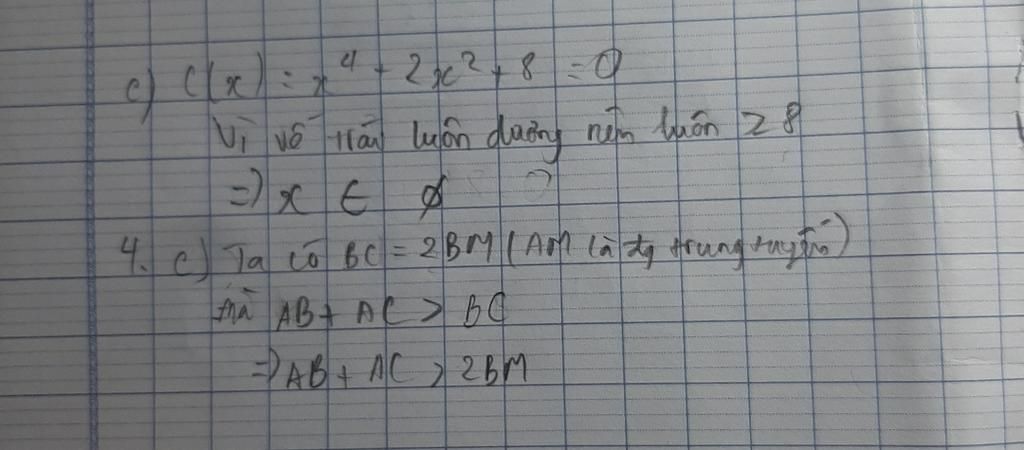 c) C(x) = x⁴ + 2x² + 8 = 0
Vì vế trái luôn dương nên luôn ≥ 8
=> x ∈ ∅
4. c) Ta có BC = 2BM (AM là đg trung tuyến)
mà AB + AC > BC
=> AB + AC > 2BM